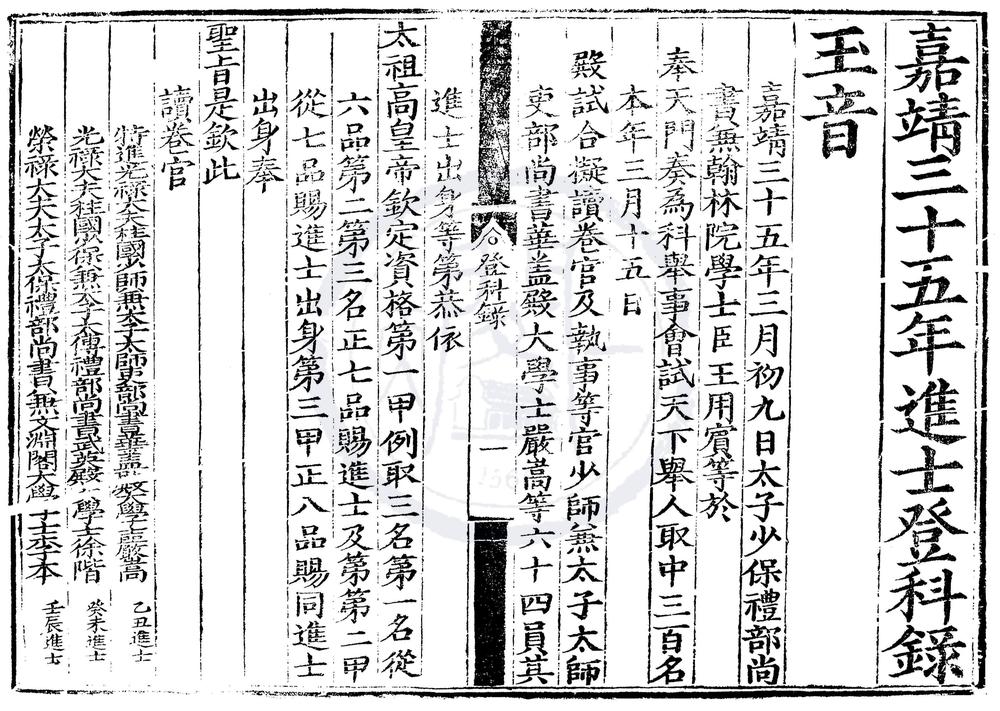 嘉靖三十五年進士登科錄
玉音
嘉靖三十五年三月初九日太子少保禮部尚
書兼翰林院學士臣王用賓等於
奉天門奏為科舉事會試天下舉人取中三百名
本年三月十五日
殿試合擬讀卷官及執事等官少師兼太子太師
吏部尚書華蓋殿大學士嚴嵩等六十四員其
登科錄
一
進士出身等第恭依
太祖高皇帝欽定資格第一甲例取三名第一名從
六品第二第三名正七品賜進士及第第二甲
從七品賜進士出身第三甲正八品賜同進士
出身奉
聖旨是欽此
讀卷官
特進光祿大夫柱國少師兼太子太師吏部尚書華蓋殿大學士嚴嵩 乙丑進士
光祿大夫柱國少保兼太子太傅禮部尚書武英殿大學士徐階 癸未進士
榮祿大夫太子太保禮部尚書兼文淵閣大學士李本 壬辰進士